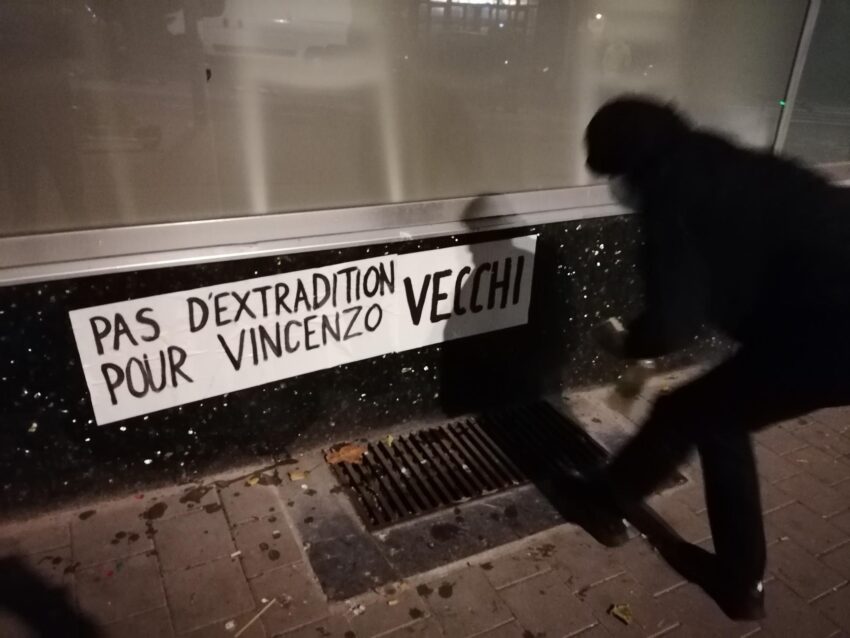 PAS D'EXTRADITION
POUR VINCENZO VECCHI